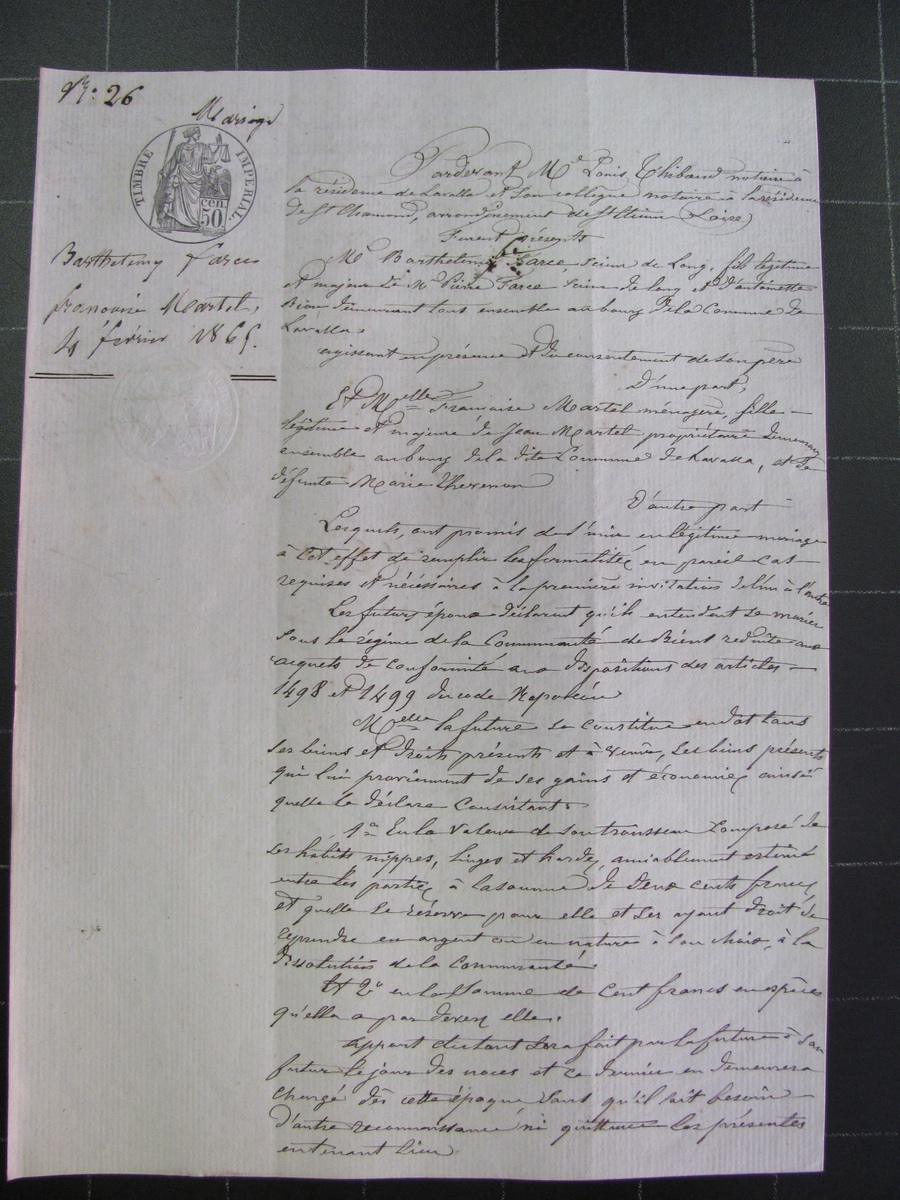 N°: 26
Mariage
TIMBRE IMPÉRIAL
50 cen.
Barthelmy Farce
francoise Martel,
4 février 1865.
Pardevant Me Louis Thibaud notaire à
la résidence de Lavalla et son collègue notaire à la résidence
de St Chamond, arrondissement de St Etienne (Loire)
Furent présents
Mr Barthelemy Farce, scieur de Long, fils légitime
et majeur de Mr Pierre Farce scieur de long et d'antoinette
demeurant tous ensemble au bourg de la Commune de
Lavalla
agissant en présence et du consentement de son père
D'une part,
Et Melle Francoise Martel ménagère, fille
légitime et majeure de Jean Martel propriétaire demeurant
ensemble au bourg de la dite Commune de Lavalla, et de
défunte Marie Thevenon
D'autre part
Lesquels, ont promis de s'unir en légitime mariage
à cet effet de remplir les formalités en pareil cas
requises et nécessaires à la première invitation de l'un à l'autre
Les futurs époux déclarent qu'ils entendent se marier
sous le régime de la Communauté de Biens reduite aux
acquets de conformité aux dispositions des articles
1498 et 1499 du code Napoléon
Melle la future se constitue en dot tous
ses biens et droits présents et à venir, ses biens présents
qui lui proviennent de ses gains et économies ainsi
quelle le déclare Consistant
1° En la valeur de son trousseau Composé de
ses habits nippes, linges et hardes, amiablement estimé
entre les parties à la somme de deux cents francs
et quelle se réserve pour elle et ses ayant droit de
reprendre en argent ou en nature à son choix, à la
dissolution de la Communauté
Et 2° en la Somme de Cent francs en espèces
qu'elle a par devers elle.
Apport du tout sera fait par la future à son
futur le jour des noces et ce dernier en demeurera
chargé dès cette époque sans qu'il soit besoin
d'autre reconnaissance ni quittance les présentes
en tenant lieu